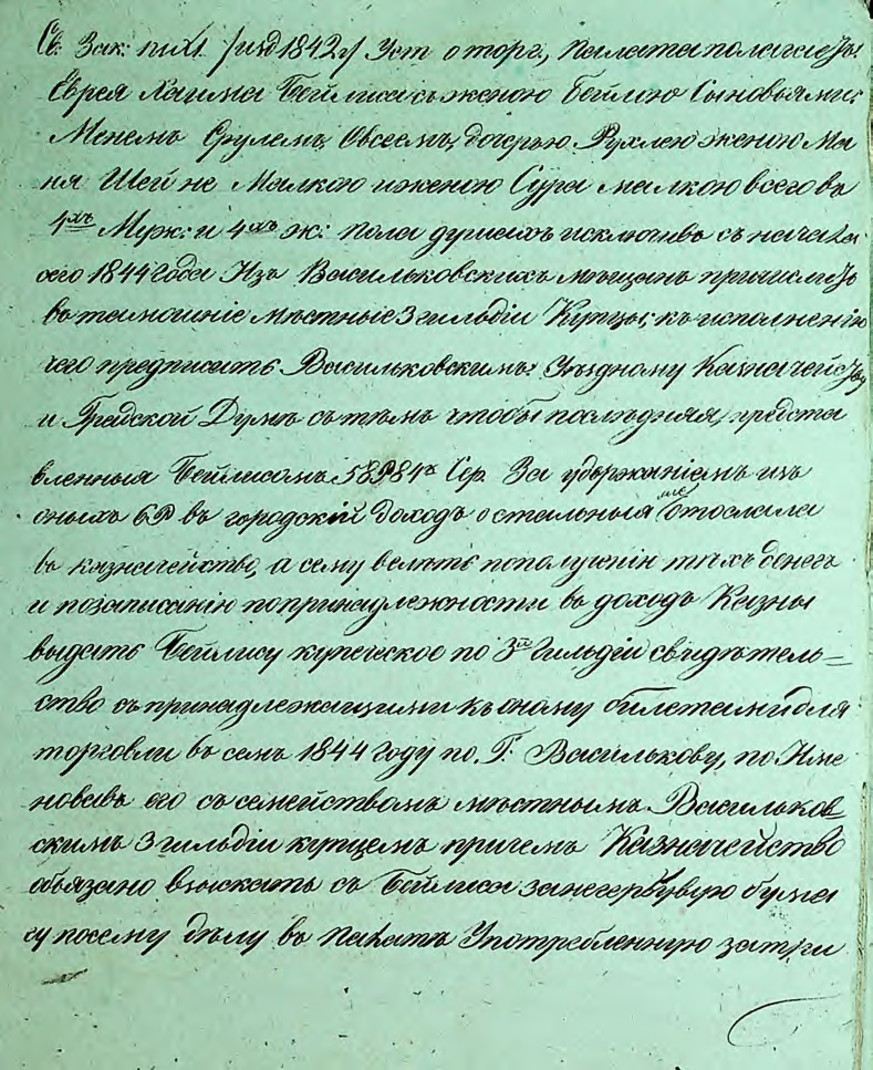 Св. Зак: т. XI /изд 1842 г/ Уст о торг., Палата полагаетъ:
Еврея Хаима Бейлиса съ женою Бейлею Сыновьями:
Менемъ Срулемъ, Овсеемъ, дочерью Рухлею женою Ме
ня Шейне Малкою и женою Сура малкою всего въ
4хъ Муж: и 4хъ ж: пола душахъ исключивъ съ начала
сего 1844 года Изъ Васильковскихъ мѣщанъ причислить
въ тамошніе мѣстные 3 гильдіи Купцы; къ исполненію
чего предписать Васильковскимъ: Уѣздному Казначейству
и Градской Думѣ съ тѣмъ чтобы послѣдняя, предста
вленныя Бейлисомъ 58 Р 84 к Сер. За удержаніемъ изъ
оныхъ 6 Р въ городскій доходъ остальныя отослала
въ казначейство, а сему велѣть по полученіи тѣхъ денегъ
и по записанію по принадлежности въ доходъ Казны
выдать Бейлису купеческое по 3й Гильдіи свидѣтель=
ство съ принадлежащими къ оному билетами для
торговли въ семъ 1844 году по Г. Василькову, по Име
новавъ его съ семействомъ мѣстнымъ Васильков
скимъ 3 гильдіи купцемъ причемъ Казначейство
обязано взыскать съ Бейлиса за негербувую бума
гу по сему дѣлу въ Палатѣ Употребленную за три